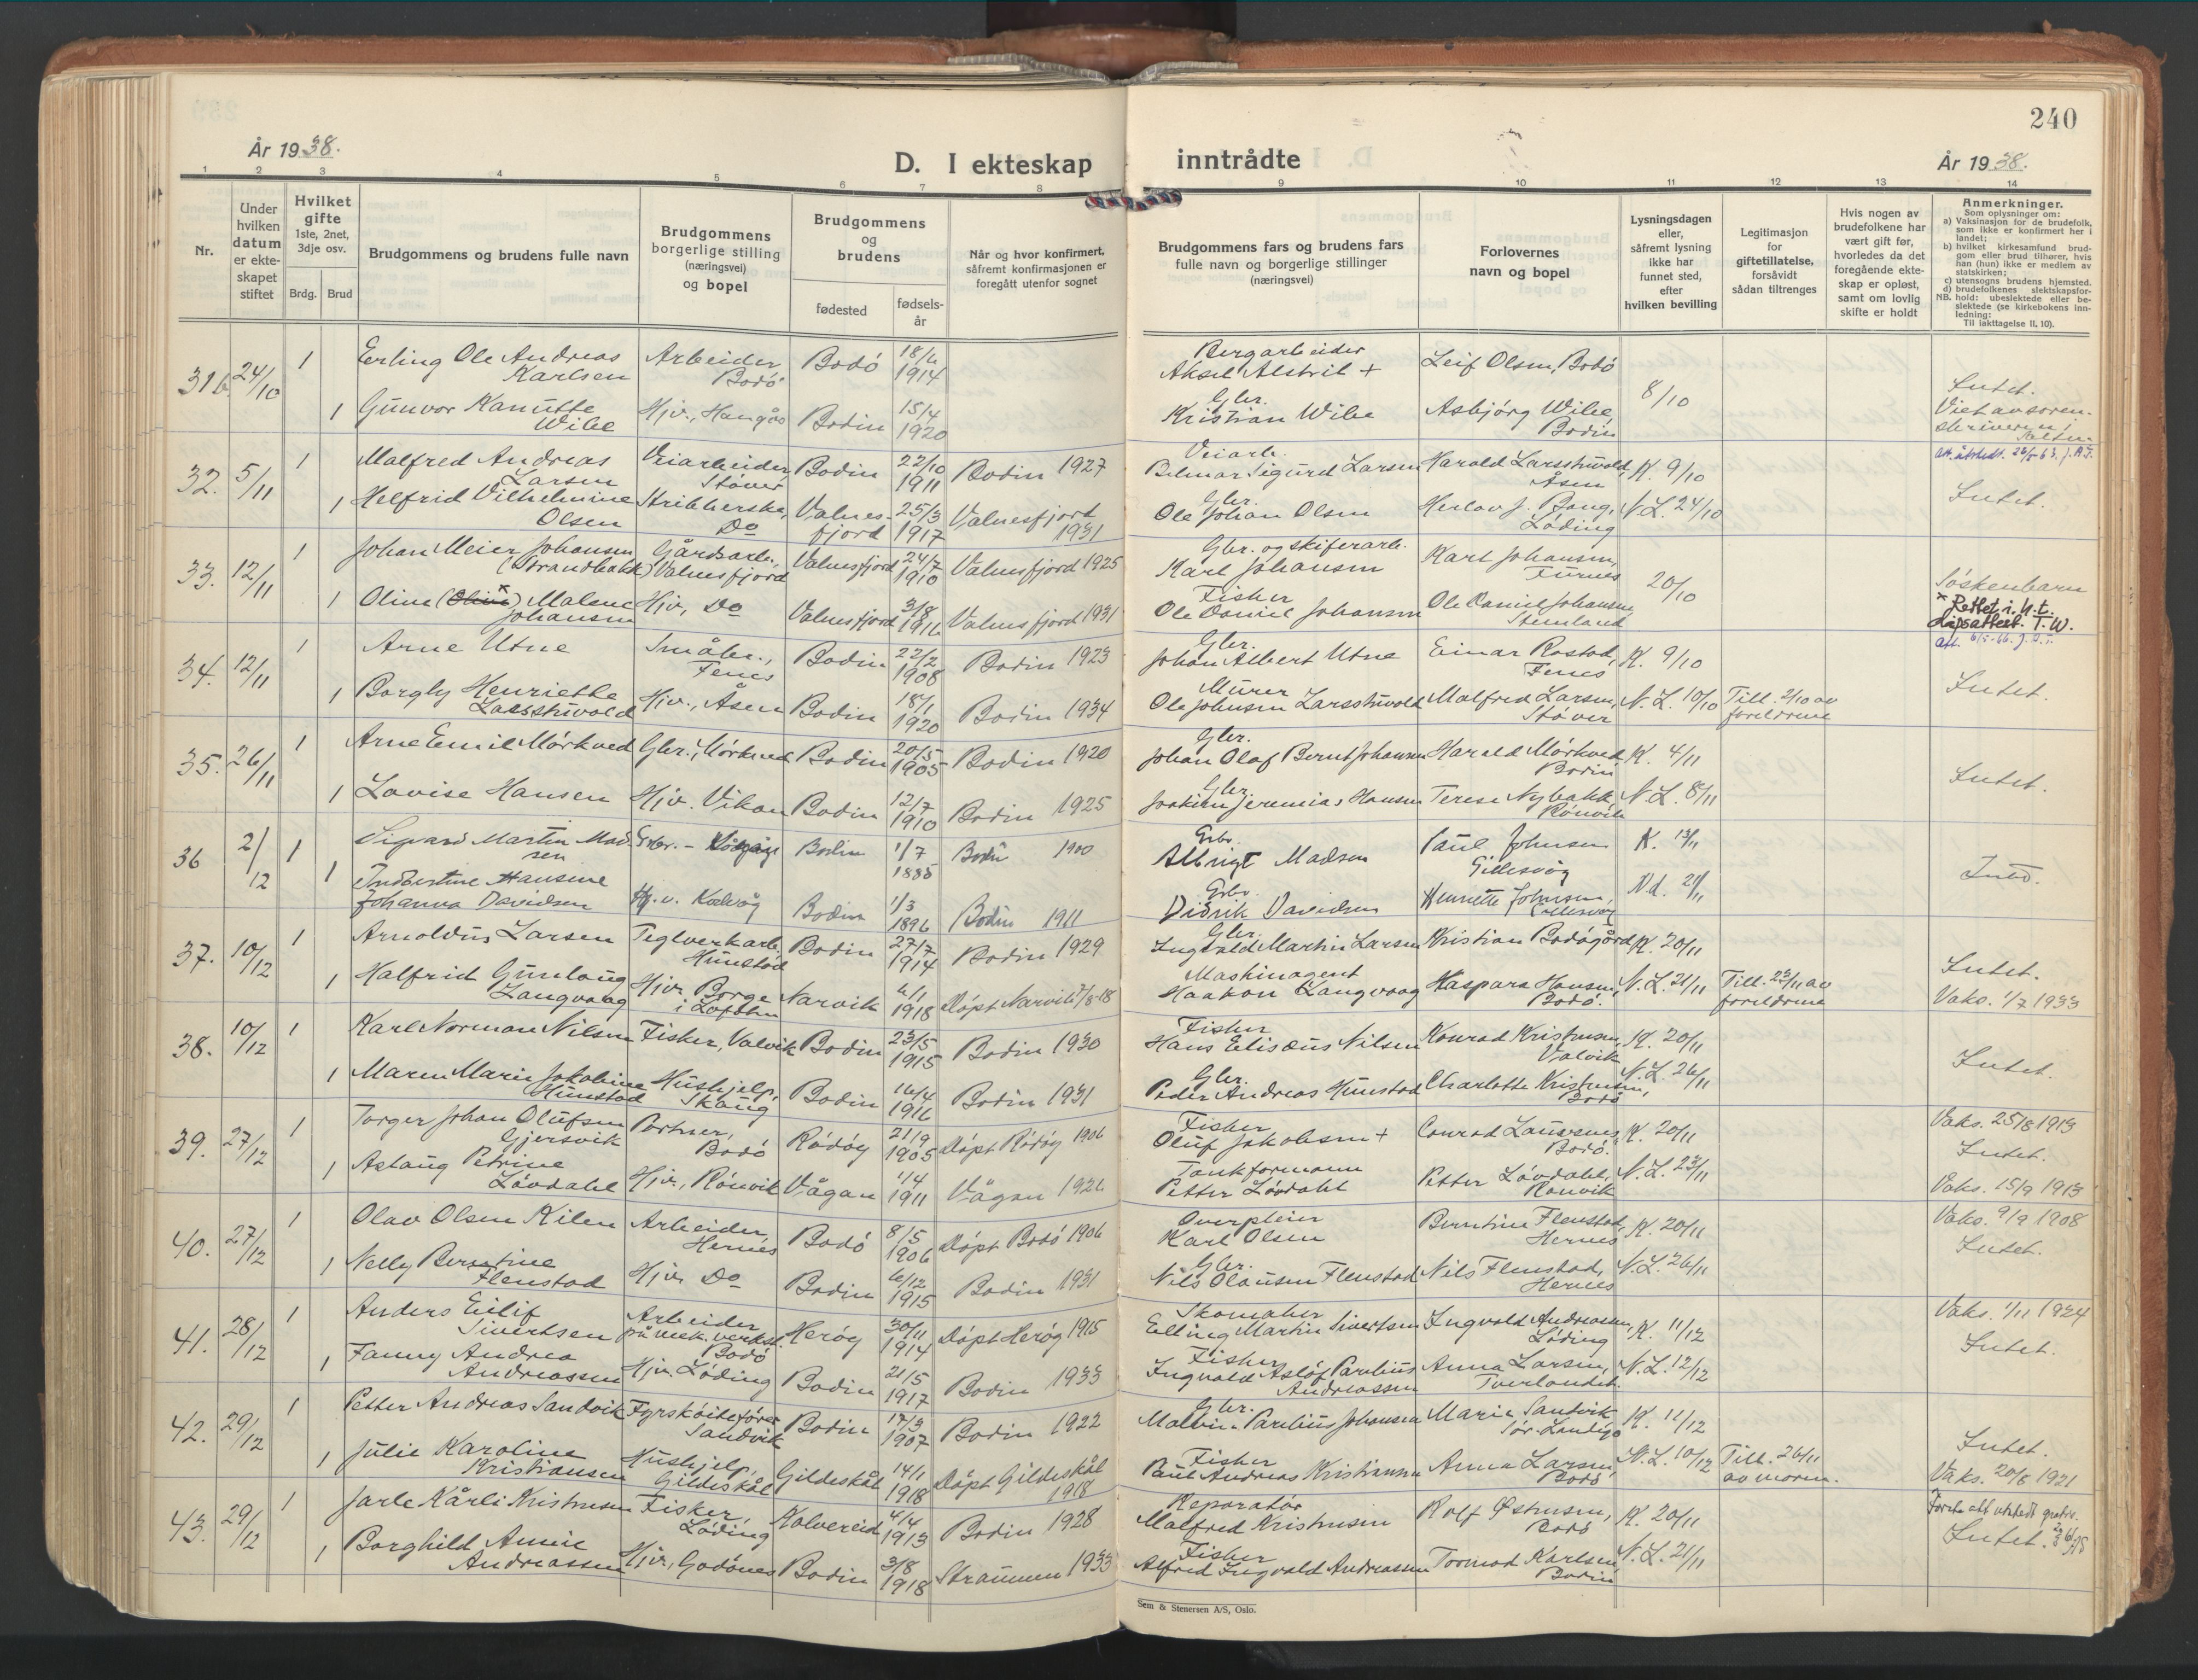 240
År 1938.
D. I ekteskap inntrådte
År 1938.
1 2 3 4 5 6 7 8 9 10 11 12 13 14
Nr.
Under hvilken datum er ekteskapet stiftet
Hvilket gifte 1ste, 2net, 3dje osv.
Brdg. Brud
Brudgommens og brudens fulle navn
Brudgommens borgerlige stilling (næringsvei) og bopel
Brudgommens og brudens
fødested
fødselsår
Når og hvor konfirmert, såfremt konfirmasjonen er foregått utenfor sognet
Brudgommens fars og brudens fars fulle navn og borgerlige stillinger (næringsvei)
Forlovernes navn og bopel
Lysningsdagen eller, såfremt lysning ikke har funnet sted, efter hvilken bevilling
Legitimasjon for giftetillatelse, forsåvidt sådan tiltrenges
Hvis nogen av brudefolkene har vært gift før, hvorledes da det foregående ekteskap er opløst, samt om lovlig skifte er holdt
Anmerkninger.
Som oplysninger om:
a) Vaksinasjon for de brudefolk, som ikke er konfirmert her i landet;
b) hvilket kirkesamfund brudgom eller brud tilhører, hvis han (hun) ikke er medlem av statskirken;
c) utensogns brudens hjemsted.
d) brudefolkenes slektskapsforhold: ubeslektede eller beslektede (se kirkebokens innledning:
NB.
Til iakttagelse II, 10).
31b 24/10 1 Erling Ole Andreas Karlsen Arbeider, Bodó Bodó 18/6 1914 Bergarbeider Aksel Alstril + Leif Olsen, Bodó 8/10 Intet.
1 Gunvor Kanutte Wibe Hjv., Hangås Bodin 15/4 1920 Gbr. Kristian Wibe Asbjørg Wibe, Bodin Viet av sorenskriveren i Salten
32. 5/11 1 Malfred Andreas Larsen Veiarbeider, Støver Bodin 22/10 1911 Bodin 1927 Veiarb. Bilmar Sigurd Larsen Harald Larsstuvold, Åsen K. 9/10 Intet.
1 Helfrid Vilhelmine Olsen Strikkerske, Do Valnesfjord 25/3 1917 Valnesfjord 1931 Gbr. Ole Johan Olsen Herlov J. Bang, Løding N.L. 24/10
33. 12/11 1 Johan Meier Johansen (Strandbakk) Gårdsarb., Valnesfjord Valnesfjord 24/7 1910 Valnesfjord 1925 Gbr. og skiferarb. Karl Johansen Karl Johansen, Furnes 20/10 Søskenbarn
1 Oline Malene Johansen Hjv., Do Valnesfjord 3/8 1916 Valnesfjord 1931 Fisker Ole Daniel Johansen Ole Daniel Johansen, Stemland * Rettet i. h. t. dåpsattest. T. W.
34. 12/11 1 Arne Utne Småbr., Fenes Bodin 22/2 1908 Bodin 1923 Gbr. Johan Albert Utne Einar Rostad, Fenes K. 9/10 Intet.
1 Borgly Henriette Larsstuvold Hjv., Åsen Bodin 18/1 1920 Bodin 1934 Murer Ole Johnsen Larsstuvold Malfred Larsen, Støver N.L. 10/10 Till. 2/10 av foreldrene
35. 26/11 1 Arne Emil Mórkved Gbr., Mórkved Bodin 20/5 1905 Bodin 1920 Gbr. Johan Olaf Bernt Johansen Harald Mórkved, Bodin K. 4/11 Intet.
1 Lovise Hansen Hjv. Vikan Bodin 12/7 1910 Bodin 1925 Gbr. Joakim Jeremias Hansen Terese Nybakk, Rónvik N.L. 8/11
36 2/12 1 Sigvard Martin Madsen Bodin 1/7 1885 Bodin 1900 Gbr. Albrigt Madsen Paul Johnsen Gillesvåg K. 13/11
1 Indbertine Hansine Johanna Davidsen Hj.v. Kalvåg Bodin 1/3 1896 Bodin 1911 Gbr. Didrik Davidsen Henriette Johnsen, Gillesvåg N.L. 21/11
37. 10/12 1 Arnoldus Larsen Teglverkarb. Hunstad Bodin 27/7 1914 Bodin 1929 Gbr. Ingvald Martin Larsen Kristian Bodógård K. 20/11 Intet.
1 Halfrid Gunlaug Langvaag Hjv. Borge i Lofoten Narvik 4/1 1918 Dópt Narvik Maskinagent Haakon Langvaag Kaspara Hansen, Bodó. N.L. 21/11 Till. 23/11 av foreldrene Vaks. 1/7 1933
38. 10/12 1 Karl Norman Nilsen Fisker, Valvik Bodin 23/5 1915 Bodin 1930 Fisker Hans Eliseus Nilsen Konrad Kristensen, Valvik K. 20/11 Intet.
1 Maren Marie Jakobine Hunstad Hushjelp, Skaug Bodin 16/4 1916 Bodin 1931 Gbr. Peder Andreas Hunstad Charlotte Kristensen, Bodó N.L. 26/11
39. 27/12 1 Torger Johan Olufsen Gjersvik Portner, Bodó Ródóy 21/9 1905 Dópt Ródóy 1906 Fisker Oluf Jakobsen + Conrad Laursnes, Bodó. K. 20/11 Vaks. 25/8 1913 Intet.
1 Aslaug Petrine Lóvdahl Hjv., Rónvik Vågan 1/4 1911 Vågan 1926 Tankformann Petter Lóvdahl Petter Lóvdahl, Rónvik N.L. 23/11 Vaks. 15/9 1913
40. 27/12 1 Olav Olsen Kilen Arbeider, Hernes Bodó 8/5 1906 Dópt Bodó 1906 Overpleier Karl Olsen Berntine Flenstad, Hernes K. 20/11 Vaks. 9/9 1908 Intet.
1 Nelly Berntine Flenstad Hjv. Do Bodin 6/12 1915 Bodin 1931 Gbr. Nils Olausen Flenstad Nils Flenstad, Hernes N.L. 26/11
41. 28/12 1 Anders Eilif Sivertsen Arbeider på mek. verkst. Bodó Heróy 30/11 1914 Dópt Heróy 1915 Skomaker Elling Martin Sivertsen Ingvald Andreassen, Lóding K. 11/12 Vaks. 1/11 1924 Intet.
1 Fanny Andrea Andreassen Hjv. Lóding Bodin 21/5 1917 Bodin 1933 Fisker Ingvald Aslóf Parelius Andreassen Anna Larsen, Tverlandet. N.L. 12/12
42. 29/12 1 Petter Andreas Sandvik Fyrskóitefórer Sandvik Bodin 17/3 1907 Bodin 1922 Gbr. Malvin Parelius Johansen Marie Sandvik K. 11/12 Intet.
1 Julie Karoline Kristiansen Hushjelp, Gildeskål Gildeskål 14/1 1918 Dópt Gildeskål 1918 Fisker Paul Andreas Kristiansen Anna Larsen, Bodó N.L. 10/12 Till. 26/11 av moren. Vaks. 20/6 1921
43. 29/12 1 Jarle Kårli Kristensen Fisker, Lóding Kolvereid 4/4 1913 Bodin 1928 Reparatór Malfred Kristensen Rolf Østensen, Bodó K. 20/11 Intet.
1 Borghild Annie Andreassen Hjv., Godónes Bodin 3/8 1918 Straumen 1933 Fisker Alfred Ingvald Andreassen Tormod Karlsen, Bodin N.L. 21/11
Sem & Stenersen A/S, Oslo.